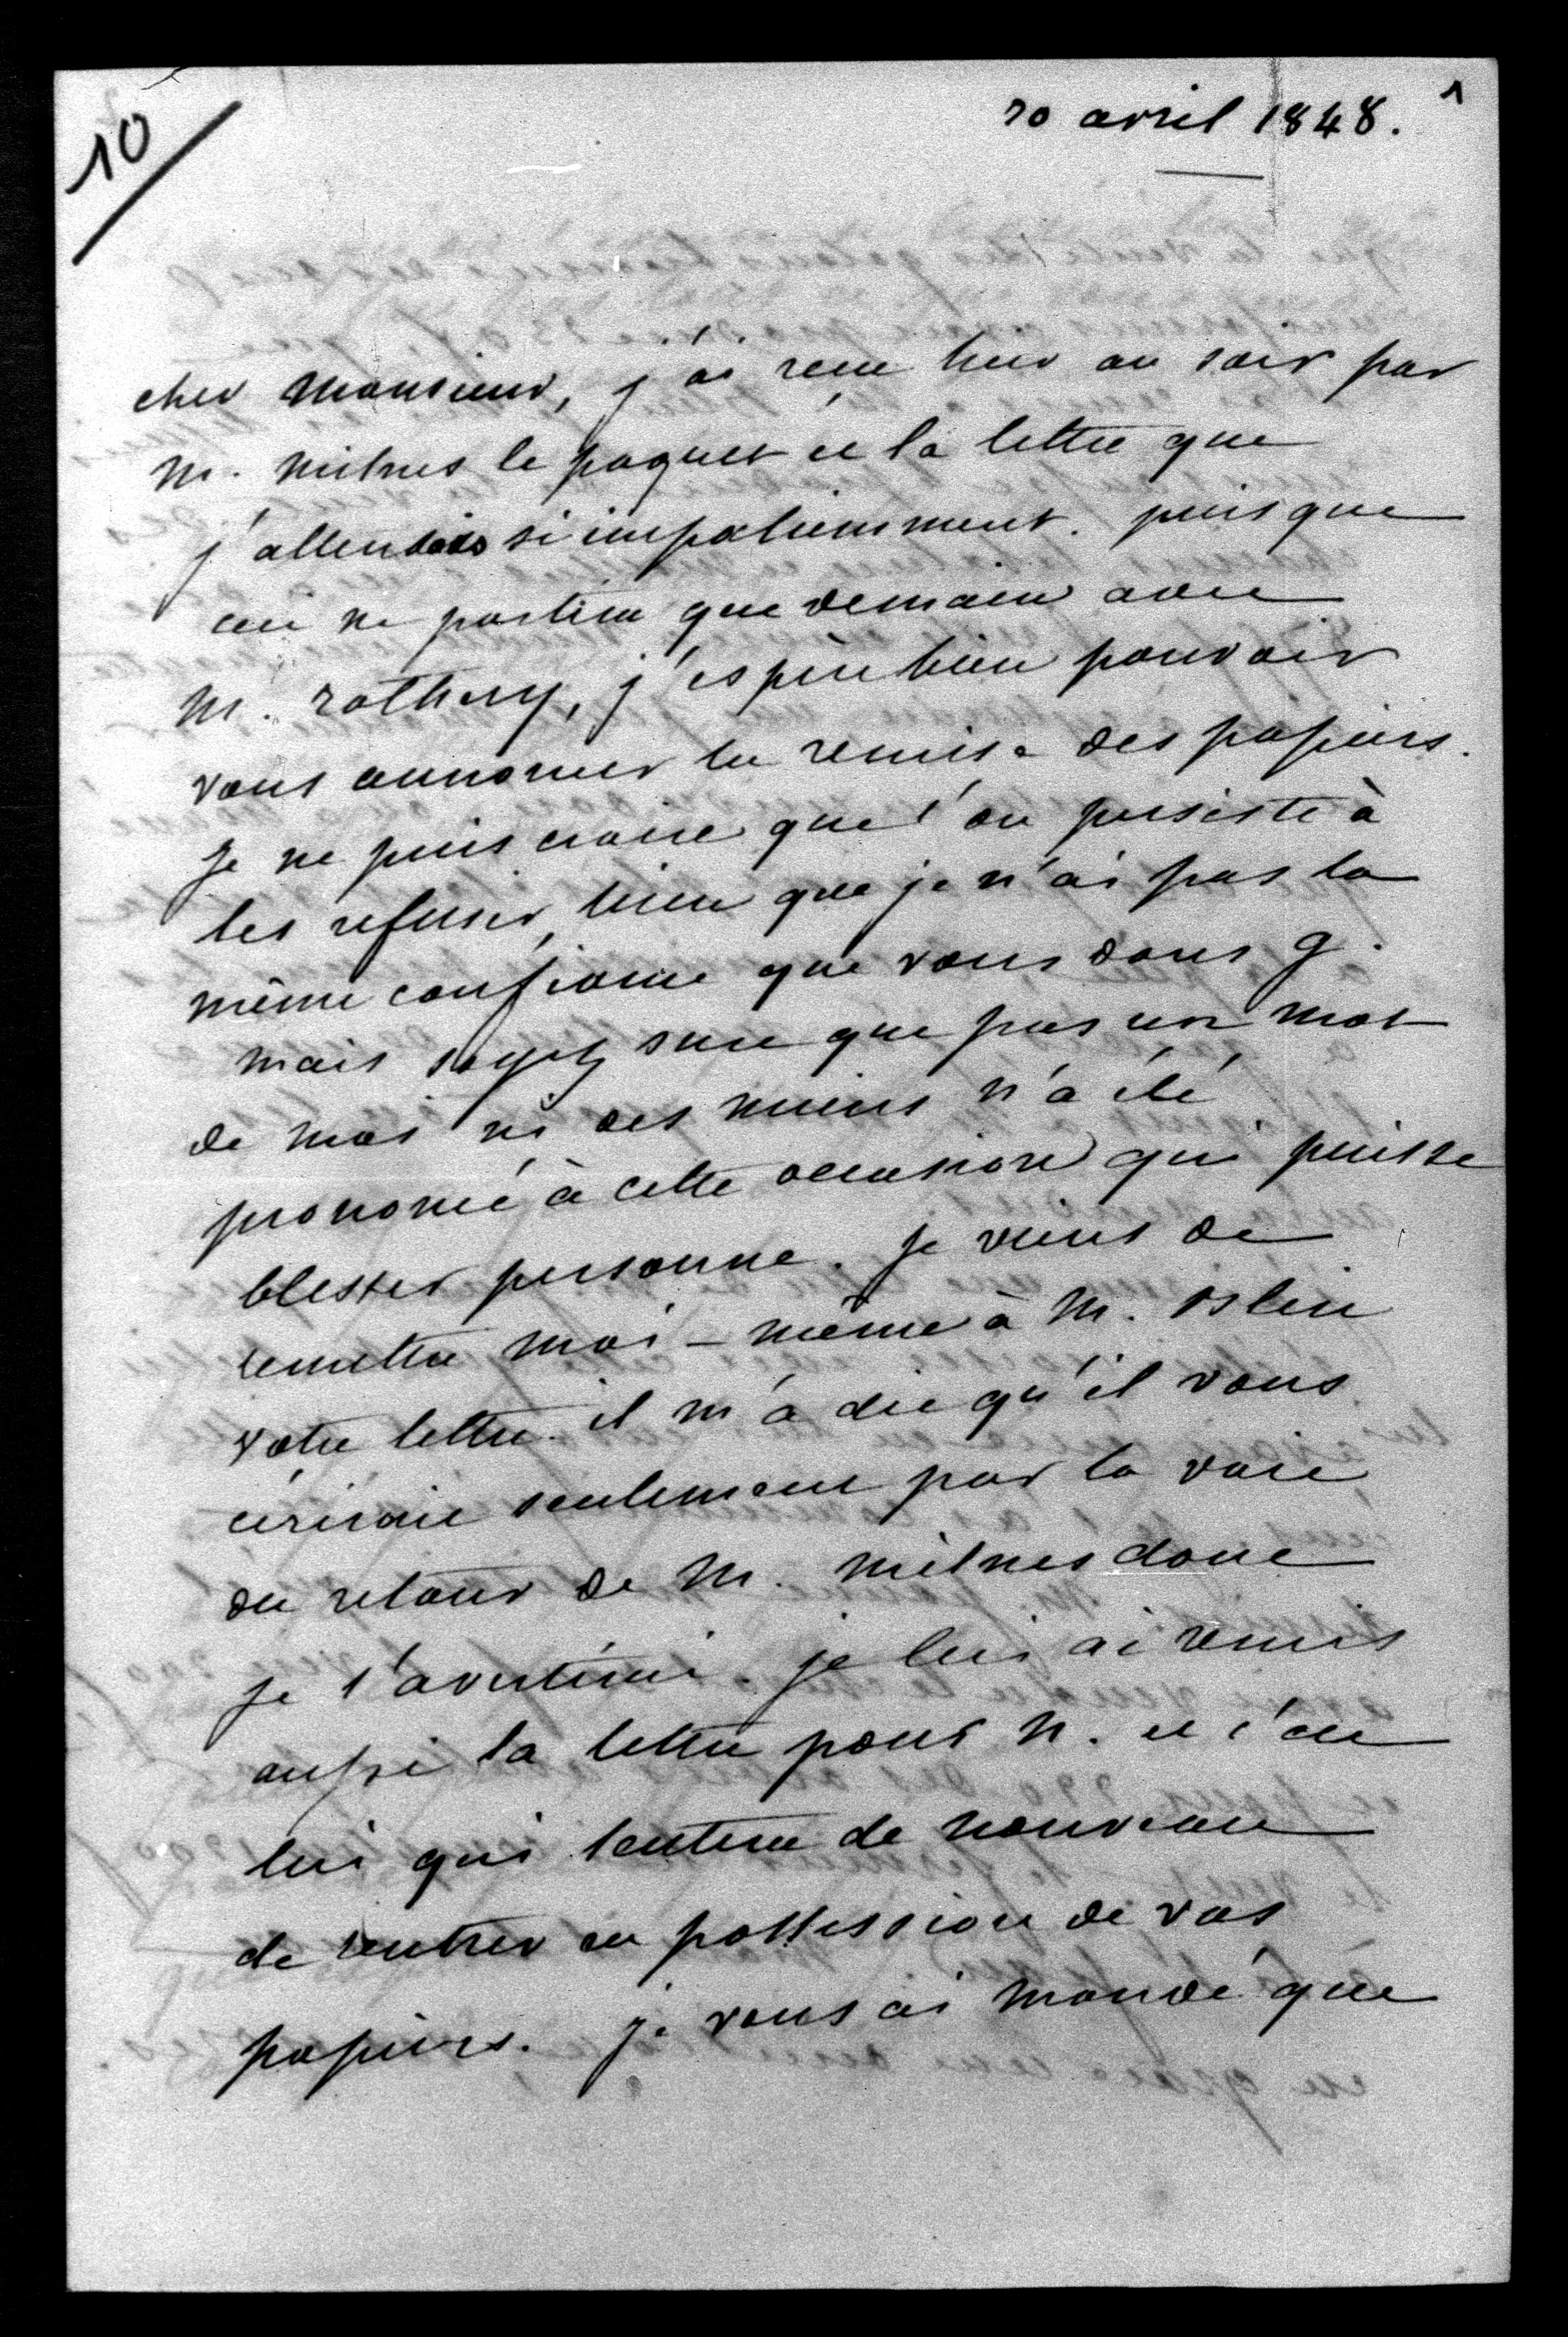 10
20 avril 1848. 1
cher Monsieur, j'ai reçu hier au soir par
M. Milnes le paquet et la lettre que
j'attendais si impatiemment. puisque
ceci ne partira que demain avec
M. Rothery, j'espère bien pouvoir
vous annoncer la remise des papiers.
Je ne puis croire que l'on persiste à
les refuser, bien que je n'ai pas la
même confiance que vous dans G.
Mais soyez sure que pas un mot
de moi ni des miens n'a été
prononcé à cette occasion qui puisse
blesser personne. Je viens de
remettre moi-même à M.
votre lettre. il m'a dit qu'il vous
écrirait seulement par la voie
du retour de M. Milnes donc
je l'avertirai. je lui ai remis
aussi la lettre pour N. et c'est
lui qui tentera de nouveau
de rentrer en possession de vos
papiers. je vous ai mandé que